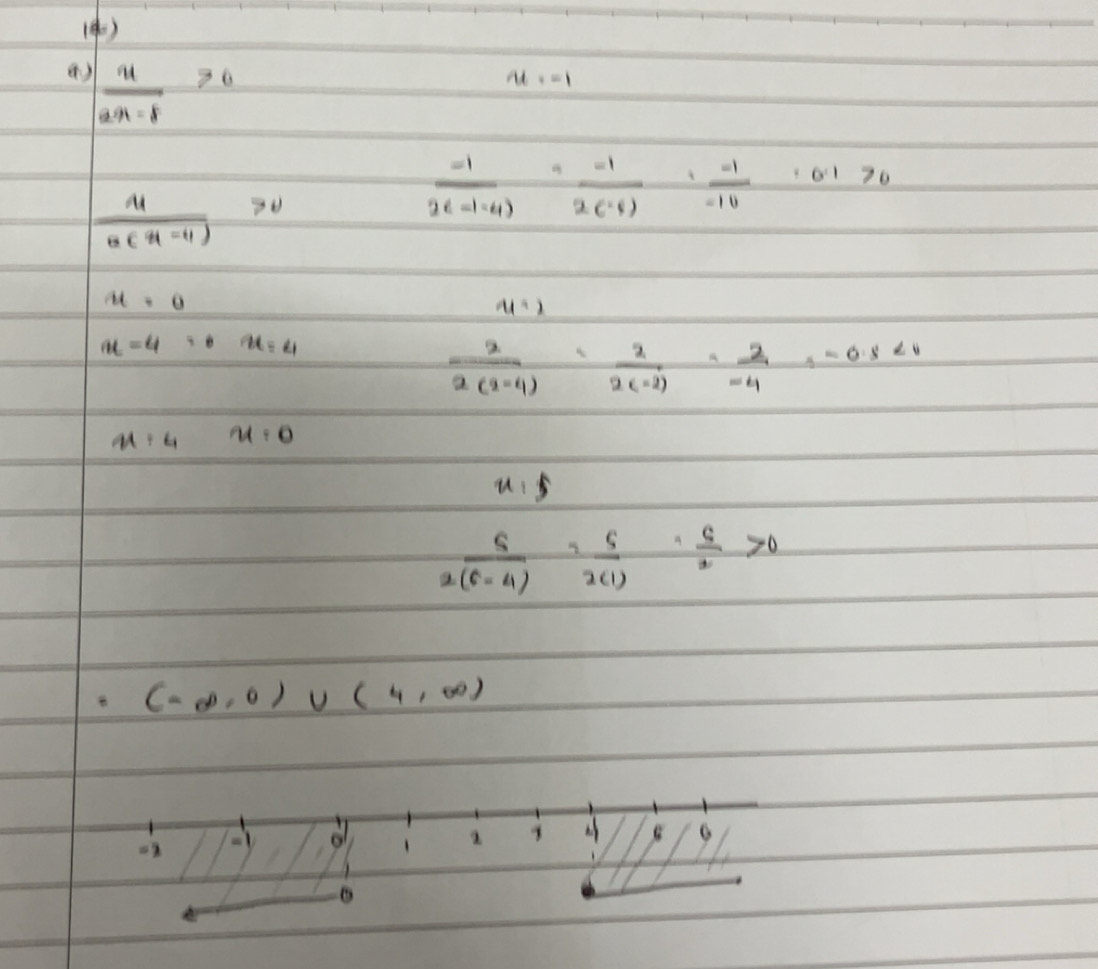 a) x/(2x-8) > 0
x/(2(x-4)) > 0
x = 0
x-4 = 0 x = 4
x = 4 x = 0
x = -1
-1/(2(-1-4)) = -1/(2(-5)) = -1/-10 = 0.1 > 0
x = 2
2/(2(2-4)) = 2/(2(-2)) = 2/-4 = -0.5 < 0
x = 5
5/(2(5-4)) = 5/(2(1)) = 5/2 > 0
= (-∞, 0) ∪ (4, ∞)
-2 -1 0 1 2 3 4 5 6